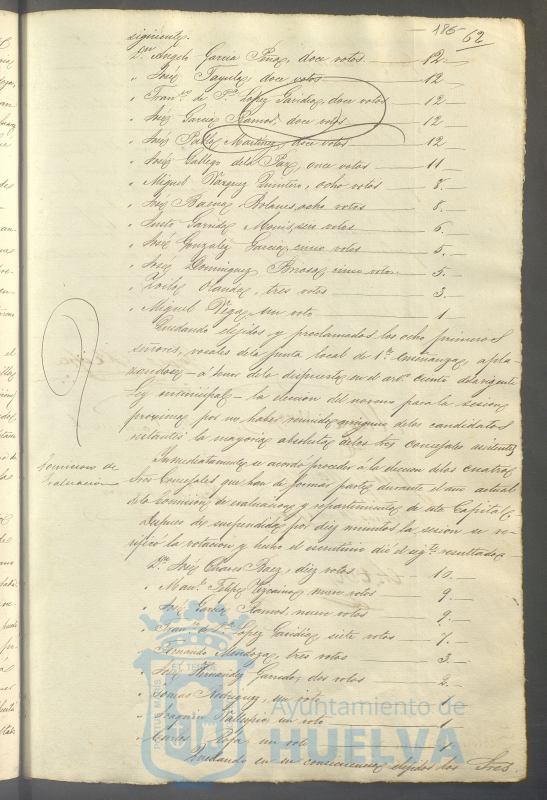 185
62
siguiente.
Dn. Angel Garcia Peña, doce votos 12.
" José Tayula, doce votos 12
" Franco. de Pa. Lopez Garidia, doce votos 12
" José Garcia Ramos, doce votos 12
" José Pablo Martinez, doce votos 12
" José Gallego de la Paz, once votos 11
" Miguel Vazquez Quintero, ocho votos 8.
" José Baena Bolaños, ocho votos 8.
" Justo Garrido Monis, seis votos 6.
" José Gonzalez Garcia, cinco votos 5.
" José Dominguez Rosa, cinco votos 5.
" tres votos 3.
" Miguel Vega, un voto 1
Quedando elejidos y proclamados los ocho primeros
señores, vocales de la junta local de 1ª. Enseñanza, apla-
zandose - a tenor de lo dispuesto en el artº. ciento de la vigente
Ley municipal - la eleccion del noveno para la sesion
proxima por no haber reunido ninguno de los candidatos
restantes la mayoria absoluta de los tres Concejales asistentes
Comision de
Evaluacion
Inmediatamente se acordó proceder á la eleccion de los cuatro
Sres Concejales que han de formar parte durante el año actual
de la Comision de evaluacion y repartimiento de esta Capital
Despues de suspendida por diez minutos la sesion se ve-
rificó la votacion y hecho el escrutinio dió el sigte. resultado
Dn. José Chaves Baez, diez votos 10.
" Manl. Felipe Vizcaino, nueve votos 9.
" José Garcia Ramos, nueve votos 9.
" Franco. de Pa. Lopez Garidia, siete votos 7.
" Fernando Mendoza, tres votos 3.
" José Hernandez Garrido, dos votos 2.
" Tomas Rodriguez, un voto 1
" Joaquin un voto 1
" Carlos Roja un voto 1
Quedando en su consecuencia elejidos los Sres
PORTUS MARIS
ET TERRE
Ayuntamiento de
HUELVA